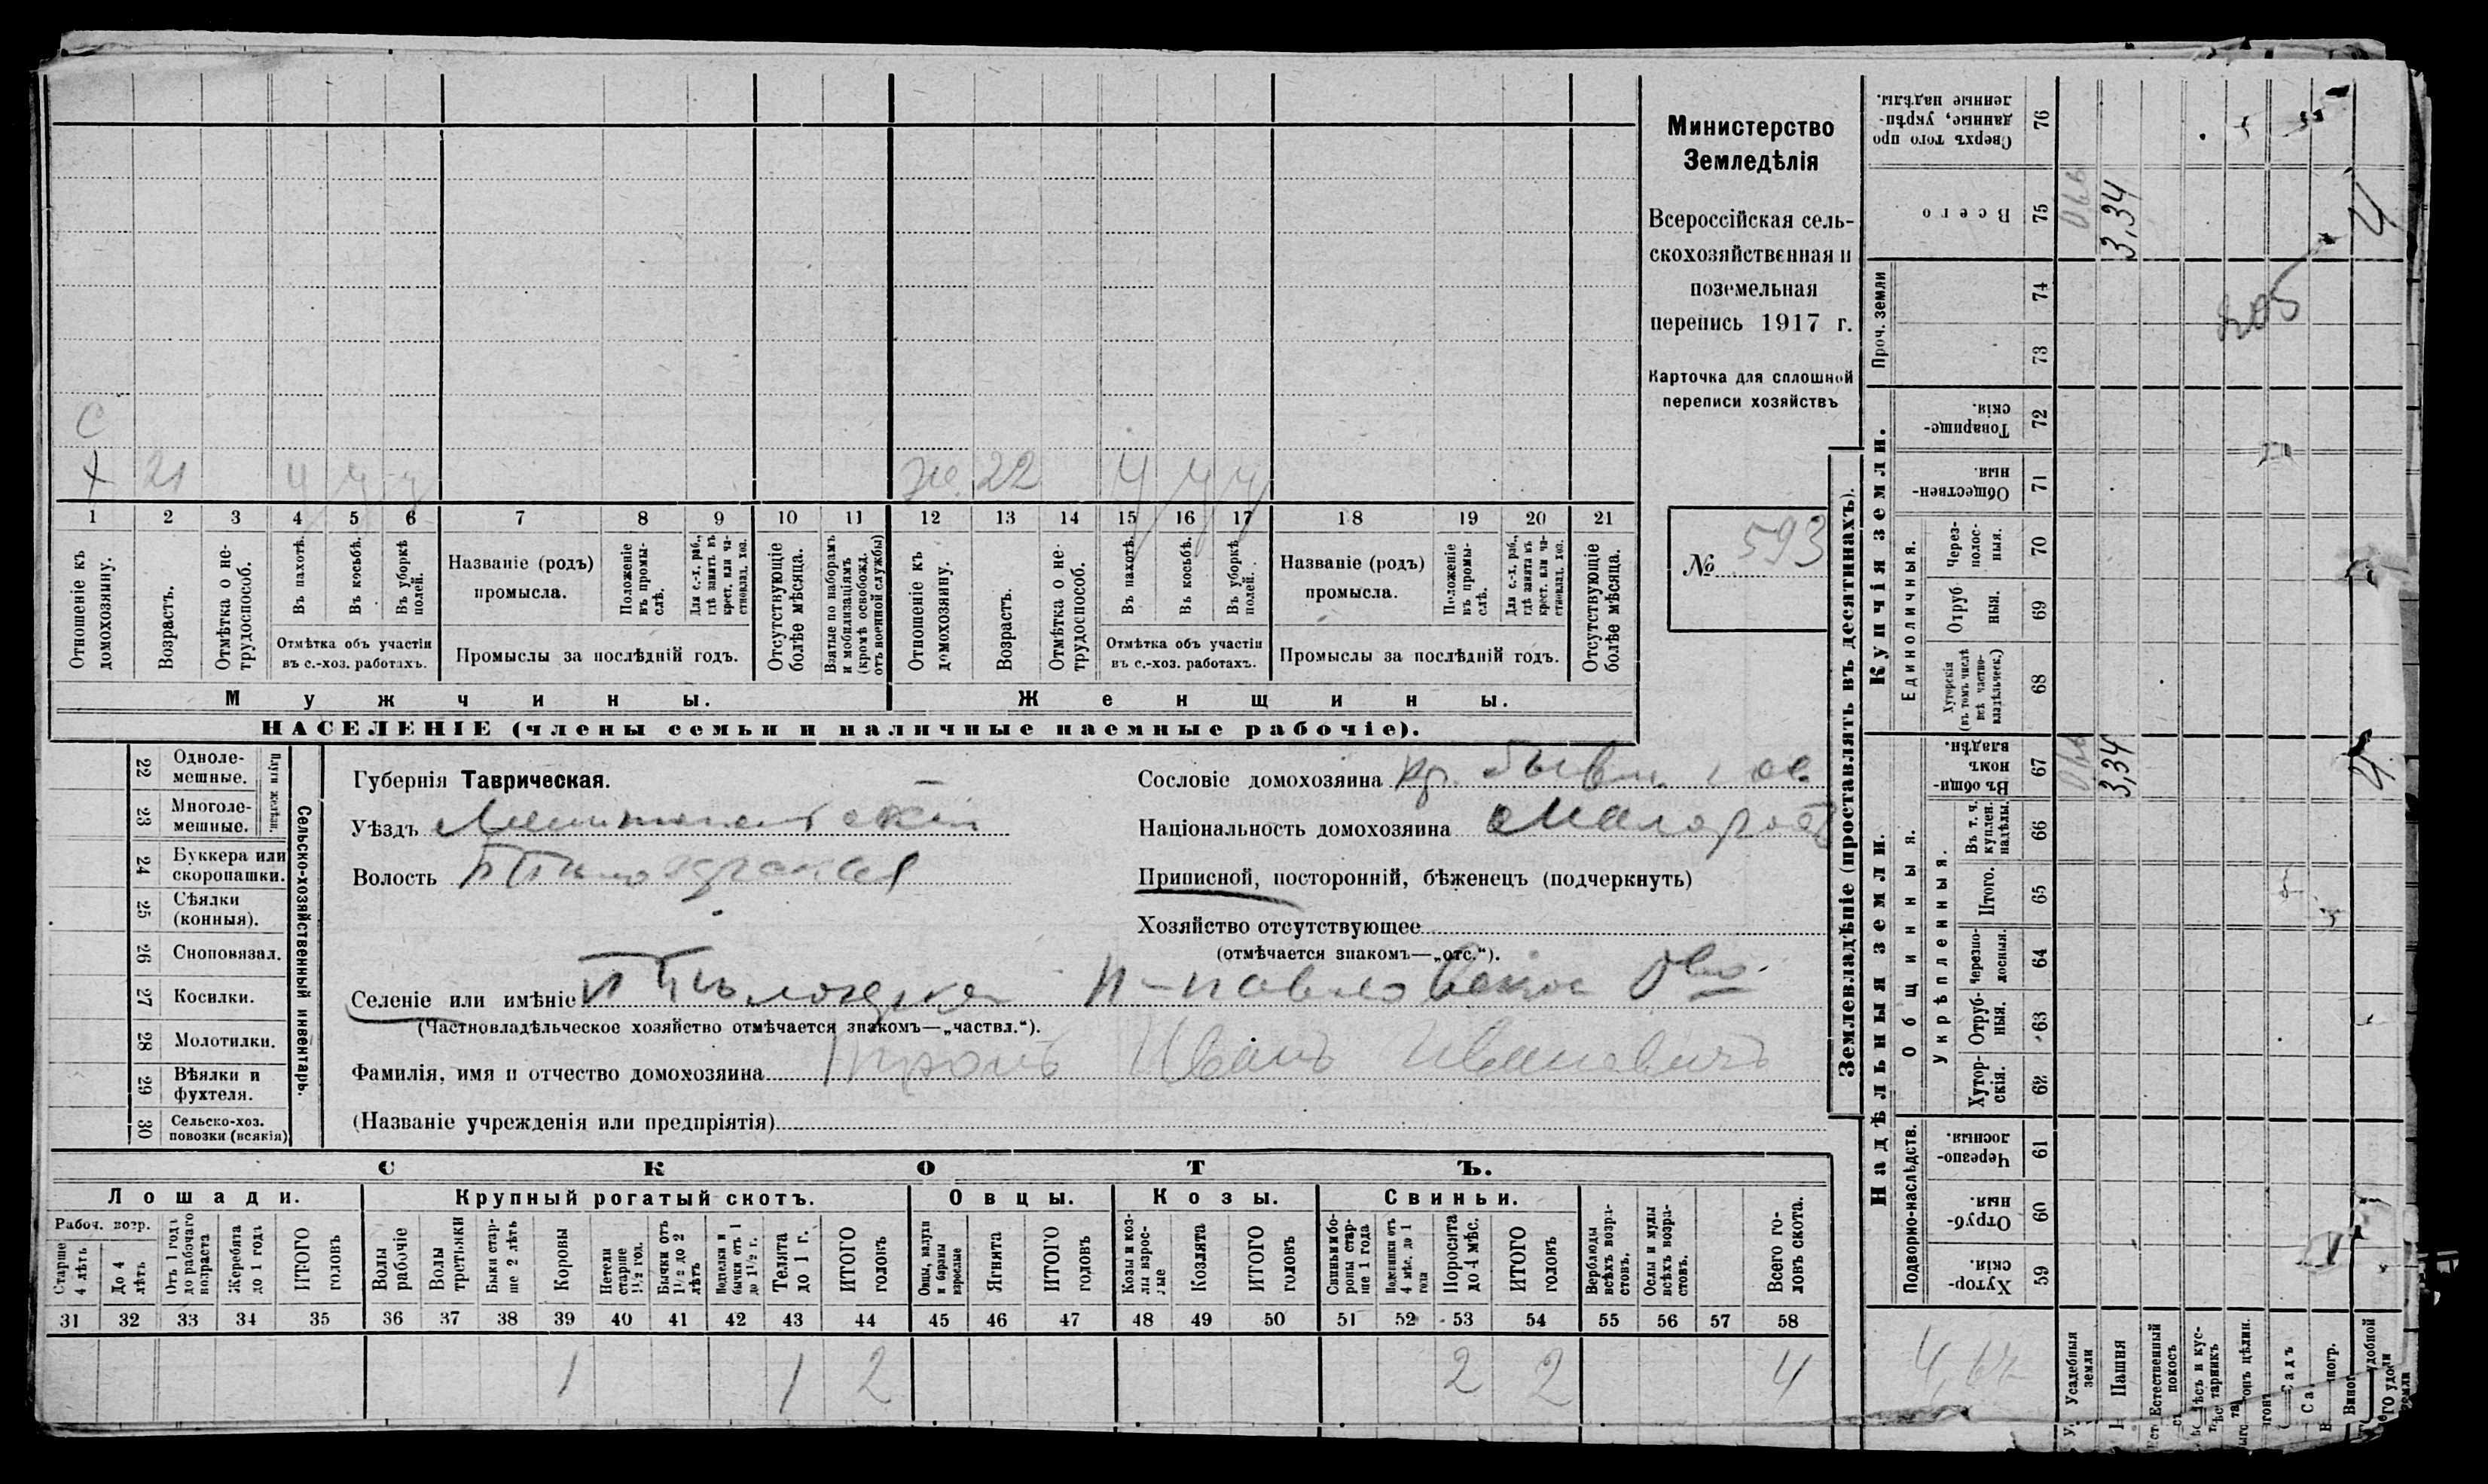 С
Х 21 ч ч ч ж. 22 ч ч ч
1 2 3 4 5 6 7 8 9 10 11 12 13 14 15 16 17 18 19 20 21
Отношеніе къ домохозяину.
Возрастъ.
Отмѣтка о не-трудоспособ.
Въ пахотѣ.
Въ косьбѣ.
Въ уборкѣ полей.
Отмѣтка объ участіи
въ с.-хоз. работахъ.
Названіе (родъ)
промысла.
Положеніе въ промы-слѣ.
Для с.-х. раб., гдѣ занятъ въ крест. или ча-стновлад. хоз.
Промыслы за послѣдній годъ.
Отсутствующіе болѣе мѣсяца.
Взятые по наборамъ и мобилизаціямъ (кромѣ освобожд. отъ военной службы)
Отношеніе къ домохозяину.
Возрастъ.
Отмѣтка о не-трудоспособ.
Въ пахотѣ.
Въ косьбѣ.
Въ уборкѣ полей.
Отмѣтка объ участіи
въ с.-хоз. работахъ.
Названіе (родъ)
промысла.
Положеніе въ промы-слѣ.
Для с.-х. раб., гдѣ занята въ крест. или ча-стновлад. хоз.
Промыслы за послѣдній годъ.
Отсутствующіе болѣе мѣсяца.
Мужчины.
Женщины.
НАСЕЛЕНІЕ (члены семьи и наличные наемные рабочіе).
Министерство
Земледѣлія
Всероссійская сель-
скохозяйственная и
поземельная
перепись 1917 г.
Карточка для сплошной
переписи хозяйствъ
№ 593
22 Одноле-мешные.
23 Многоле-мешные.
Плуги желѣзн.
24 Буккера или скоропашки.
25 Сѣялки (конныя).
26 Сноповязал.
27 Косилки.
28 Молотилки.
29 Вѣялки и фухтеля.
30 Сельско-хоз. повозки (всякія)
Сельско-хозяйственный инвентарь.
Губернія Таврическая.
Уѣздъ Мелитопольскій
Волость
Сословіе домохозяина кр. бывш. гос.
Національность домохозяина Малороссъ
Приписной, посторонній, бѣженецъ (подчеркнуть)
Хозяйство отсутствующее
(отмѣчается знакомъ—„отс.“).
Селеніе или имѣніе Н-Павловское О-во
(Частновладѣльческое хозяйство отмѣчается знакомъ—„частвл.“).
Фамилія, имя и отчество домохозяина Иванъ Ивановичъ
(Названіе учрежденія или предпріятія)
СКОТЪ.
Лошади. Крупный рогатый скотъ. Овцы. Козы. Свиньи.
Рабоч. возр.
Старше 4 лѣтъ
До 4 лѣтъ
Отъ 1 года до рабочаго возраста
Жеребята до 1 года
ИТОГО головъ
Волы рабочіе
Волы третьяки
Быки стар-ше 2 лѣтъ
Коровы
Нетели старше 1½ год.
Бычки отъ 1½ до 2 лѣтъ
Подтелки и бычки отъ 1 до 1½ г.
Телята до 1 г.
ИТОГО головъ
Овцы, валухи и бараны взрослые
Ягнята
ИТОГО головъ
Козы и коз-лы взрос-лые
Козлята
ИТОГО головъ
Свиньи и бо-ровы стар-ше 1 года
Подсвинки отъ 4 мѣс. до 1 года
Поросята до 4 мѣс.
ИТОГО головъ
Верблюды всѣхъ возра-стовъ.
Ослы и мулы всѣхъ возра-стовъ.
Всего го-ловъ скота.
31 32 33 34 35 36 37 38 39 40 41 42 43 44 45 46 47 48 49 50 51 52 53 54 55 56 57 58
1 1 2 2 2 4
Землевладѣніе (проставлять въ десятинахъ).
Сверхъ того про данные, укрѣп-ленные надѣлы. 76
Всего 75 3,34
Проч. земли 74 73
Купчія земли.
Товарище-скія. 72
Обществен-ныя. 71
Единоличныя.
Через-полос-ныя. 70
Отруб-ныя. 69
Хуторскія (въ томъ числѣ всѣ частно-владѣльческ.) 68
Надѣльныя земли.
Общинныя.
Въ общи-номъ владѣн. 67 3,34
Укрѣпленныя.
Въ т. ч. куплен. надѣлы. 66
Итого. 65
Черезпо-лосныя. 64
Отруб-ныя. 63
Хутор-скія. 62
Подворно-наслѣдств.
Черезпо-лосныя. 61
Отруб-ныя. 60
Хутор-скія. 59
Усадебныя земли
Пашня
Естественный покосъ
Садъ